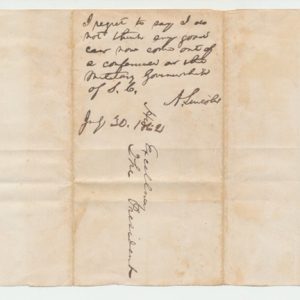 I regret to say I do
not think any good
can now come out of
a conference on the
Military Governorship
of S. C.
A. Lincoln
July 30. 1862
His
Excellency
The President